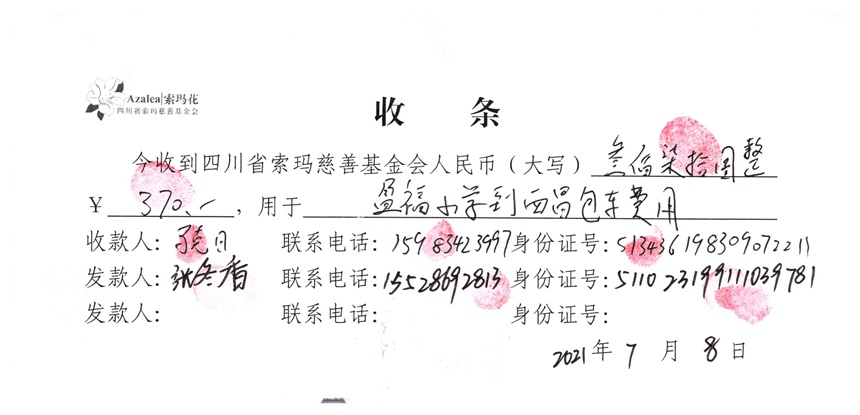 Azalea|索玛花
四川省索玛慈善基金会
收 条
今收到四川省索玛慈善基金会人民币（大写）叁佰柒拾圆整
￥ 370.- ，用于 盈福小学到西昌包车费用
收款人: 日 联系电话: 15983423997 身份证号: 513436198309072211
发款人: 张冬香 联系电话: 15528692813 身份证号: 511023199111039781
发款人: 联系电话: 身份证号:
2021年 7 月 8 日